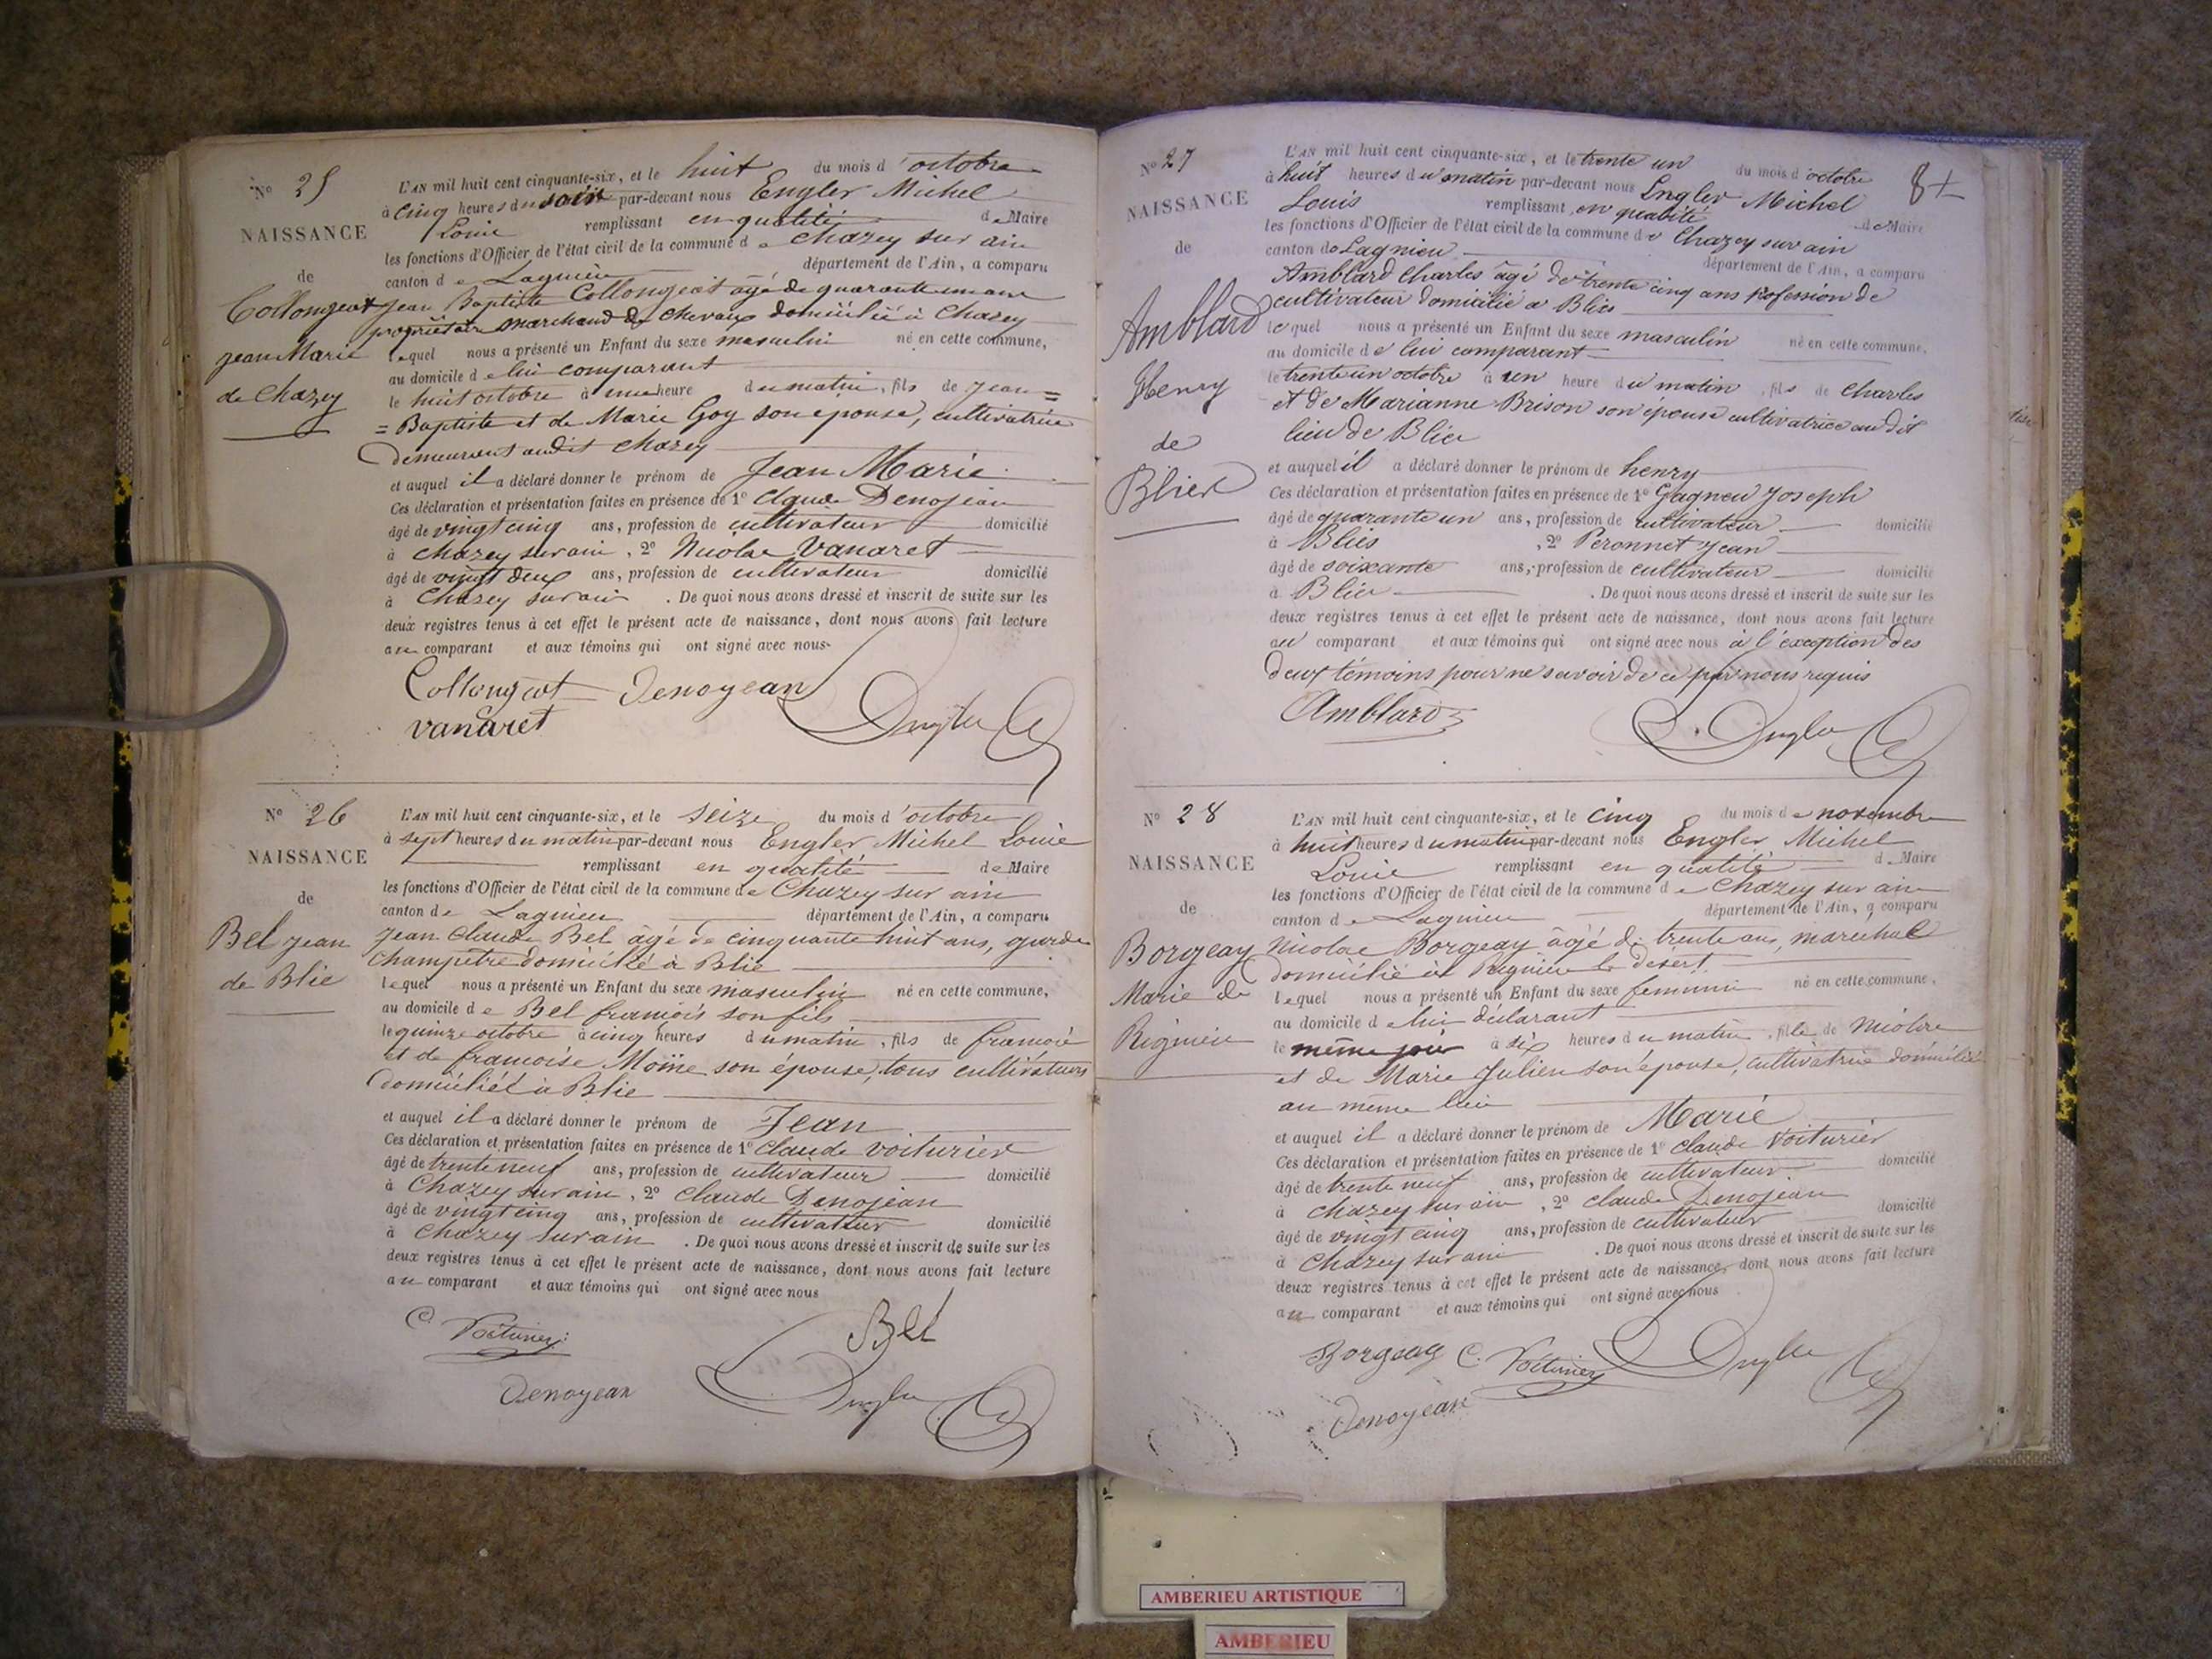 N° 25
NAISSANCE
de
Collongeat
jean Marie
de Chazey
L'AN mil huit cent cinquante-six, et le huit du mois d'octobre
à cinq heures du soir par-devant nous Engler Michel
Louis remplissant en qualité de Maire
les fonctions d'Officier de l'état civil de la commune de Chazey sur ain
canton de Lagnieu département de l'Ain, a comparu
Jean Baptiste Collongeat âgé de quarante un ans
propriétaire marchand de chevaux domicilié à Chazey
lequel nous a présenté un Enfant du sexe masculin né en cette commune,
au domicile de lui comparant
le huit octobre à une heure du matin, fils de Jean=
=Baptiste et de Marie Goy son épouse, cultivatrice
demeurant audit Chazey
et auquel il a déclaré donner le prénom de Jean Marie
Ces déclaration et présentation faites en présence de 1° Claude Denojean
âgé de vingt cinq ans, profession de cultivateur domicilié
à Chazey sur ain, 2° Nicolas Vanaret
âgé de vingt deux ans, profession de cultivateur domicilié
à Chazey sur ain. De quoi nous avons dressé et inscrit de suite sur les
deux registres tenus à cet effet le présent acte de naissance, dont nous avons fait lecture
au comparant et aux témoins qui ont signé avec nous.
Collongeat Denoyean
vanaret Engler
N° 26
NAISSANCE
de
Bel jean
de Blie
L'AN mil huit cent cinquante-six, et le seize du mois d'octobre
à sept heures du matin par-devant nous Engler Michel Louis
remplissant en qualité de Maire
les fonctions d'Officier de l'état civil de la commune de Chazey sur ain
canton de Lagnieu département de l'Ain, a comparu
Jean Claude Bel âgé de cinquante huit ans, garde
champetre domicilié à Blie
lequel nous a présenté un Enfant du sexe masculin né en cette commune,
au domicile de Bel francois son fils
le quinze octobre à cinq heures du matin, fils de francois
et de francoise Moine son épouse, tous cultivateurs
domiciliés à Blie
et auquel il a déclaré donner le prénom de Jean
Ces déclaration et présentation faites en présence de 1° Claude voiturier
âgé de trente neuf ans, profession de cultivateur domicilié
à Chazey sur ain, 2° Claude Denojean
âgé de vingt cinq ans, profession de cultivateur domicilié
à Chazey sur ain. De quoi nous avons dressé et inscrit de suite sur les
deux registres tenus à cet effet le présent acte de naissance, dont nous avons fait lecture
au comparant et aux témoins qui ont signé avec nous
C. Voiturier Bel
Denoyean Engler
N° 27
NAISSANCE
de
Amblard
Henry
de
Blies
L'AN mil huit cent cinquante-six, et le trente un du mois d'octobre
à huit heures du matin par-devant nous Engler Michel
Louis remplissant en qualité de Maire
les fonctions d'Officier de l'état civil de la commune de Chazey sur ain
canton de Lagnieu département de l'Ain, a comparu
Amblard Charles âgé de trente cinq ans Profession de
cultivateur domicilié a Blies
lequel nous a présenté un Enfant du sexe masculin né en cette commune,
au domicile de lui comparant
le trente un octobre à un heure du matin, fils de Charles
et de Marianne Brison son épouse cultivatrice au dit
lieu de Blies
et auquel il a déclaré donner le prénom de henry
Ces déclaration et présentation faites en présence de 1° Gagneu Joseph
âgé de quarante un ans, profession de cultivateur domicilié
à Blies, 2° Peronnet Jean
âgé de soixante ans, profession de cultivateur domicilié
à Blies. De quoi nous avons dressé et inscrit de suite sur les
deux registres tenus à cet effet le présent acte de naissance, dont nous avons fait lecture
au comparant et aux témoins qui ont signé avec nous à l'exception des
deux témoins pour ne savoir de ce par nous requis
Amblard Engler
N° 28
NAISSANCE
de
Borgeay
Marie de
Rignieu
L'AN mil huit cent cinquante-six, et le cinq du mois de novembre
à huit heures du matin par-devant nous Engler Michel
Louis remplissant en qualité de Maire
les fonctions d'Officier de l'état civil de la commune de Chazey sur ain
canton de Lagnieu département de l'Ain, a comparu
Nicolas Borgeay âgé de trente ans, marechal
domicilié à Rignieu le desert
lequel nous a présenté un Enfant du sexe feminin né en cette commune,
au domicile de lui déclarant
le même jour à six heures du matin, fille de Nicolas
et de Marie Julien son épouse, cultivatrice domiciliée
au même lieu
et auquel il a déclaré donner le prénom de Marie
Ces déclaration et présentation faites en présence de 1° Claude Voiturier
âgé de trente neuf ans, profession de cultivateur domicilié
à Chazey sur ain, 2° Claude Denojean
âgé de vingt cinq ans, profession de cultivateur domicilié
à Chazey sur ain. De quoi nous avons dressé et inscrit de suite sur les
deux registres tenus à cet effet le présent acte de naissance, dont nous avons fait lecture
au comparant et aux témoins qui ont signé avec nous
Borgeay C. Voiturier Engler
Denoyean
AMBERIEU ARTISTIQUE
AMBERIEU